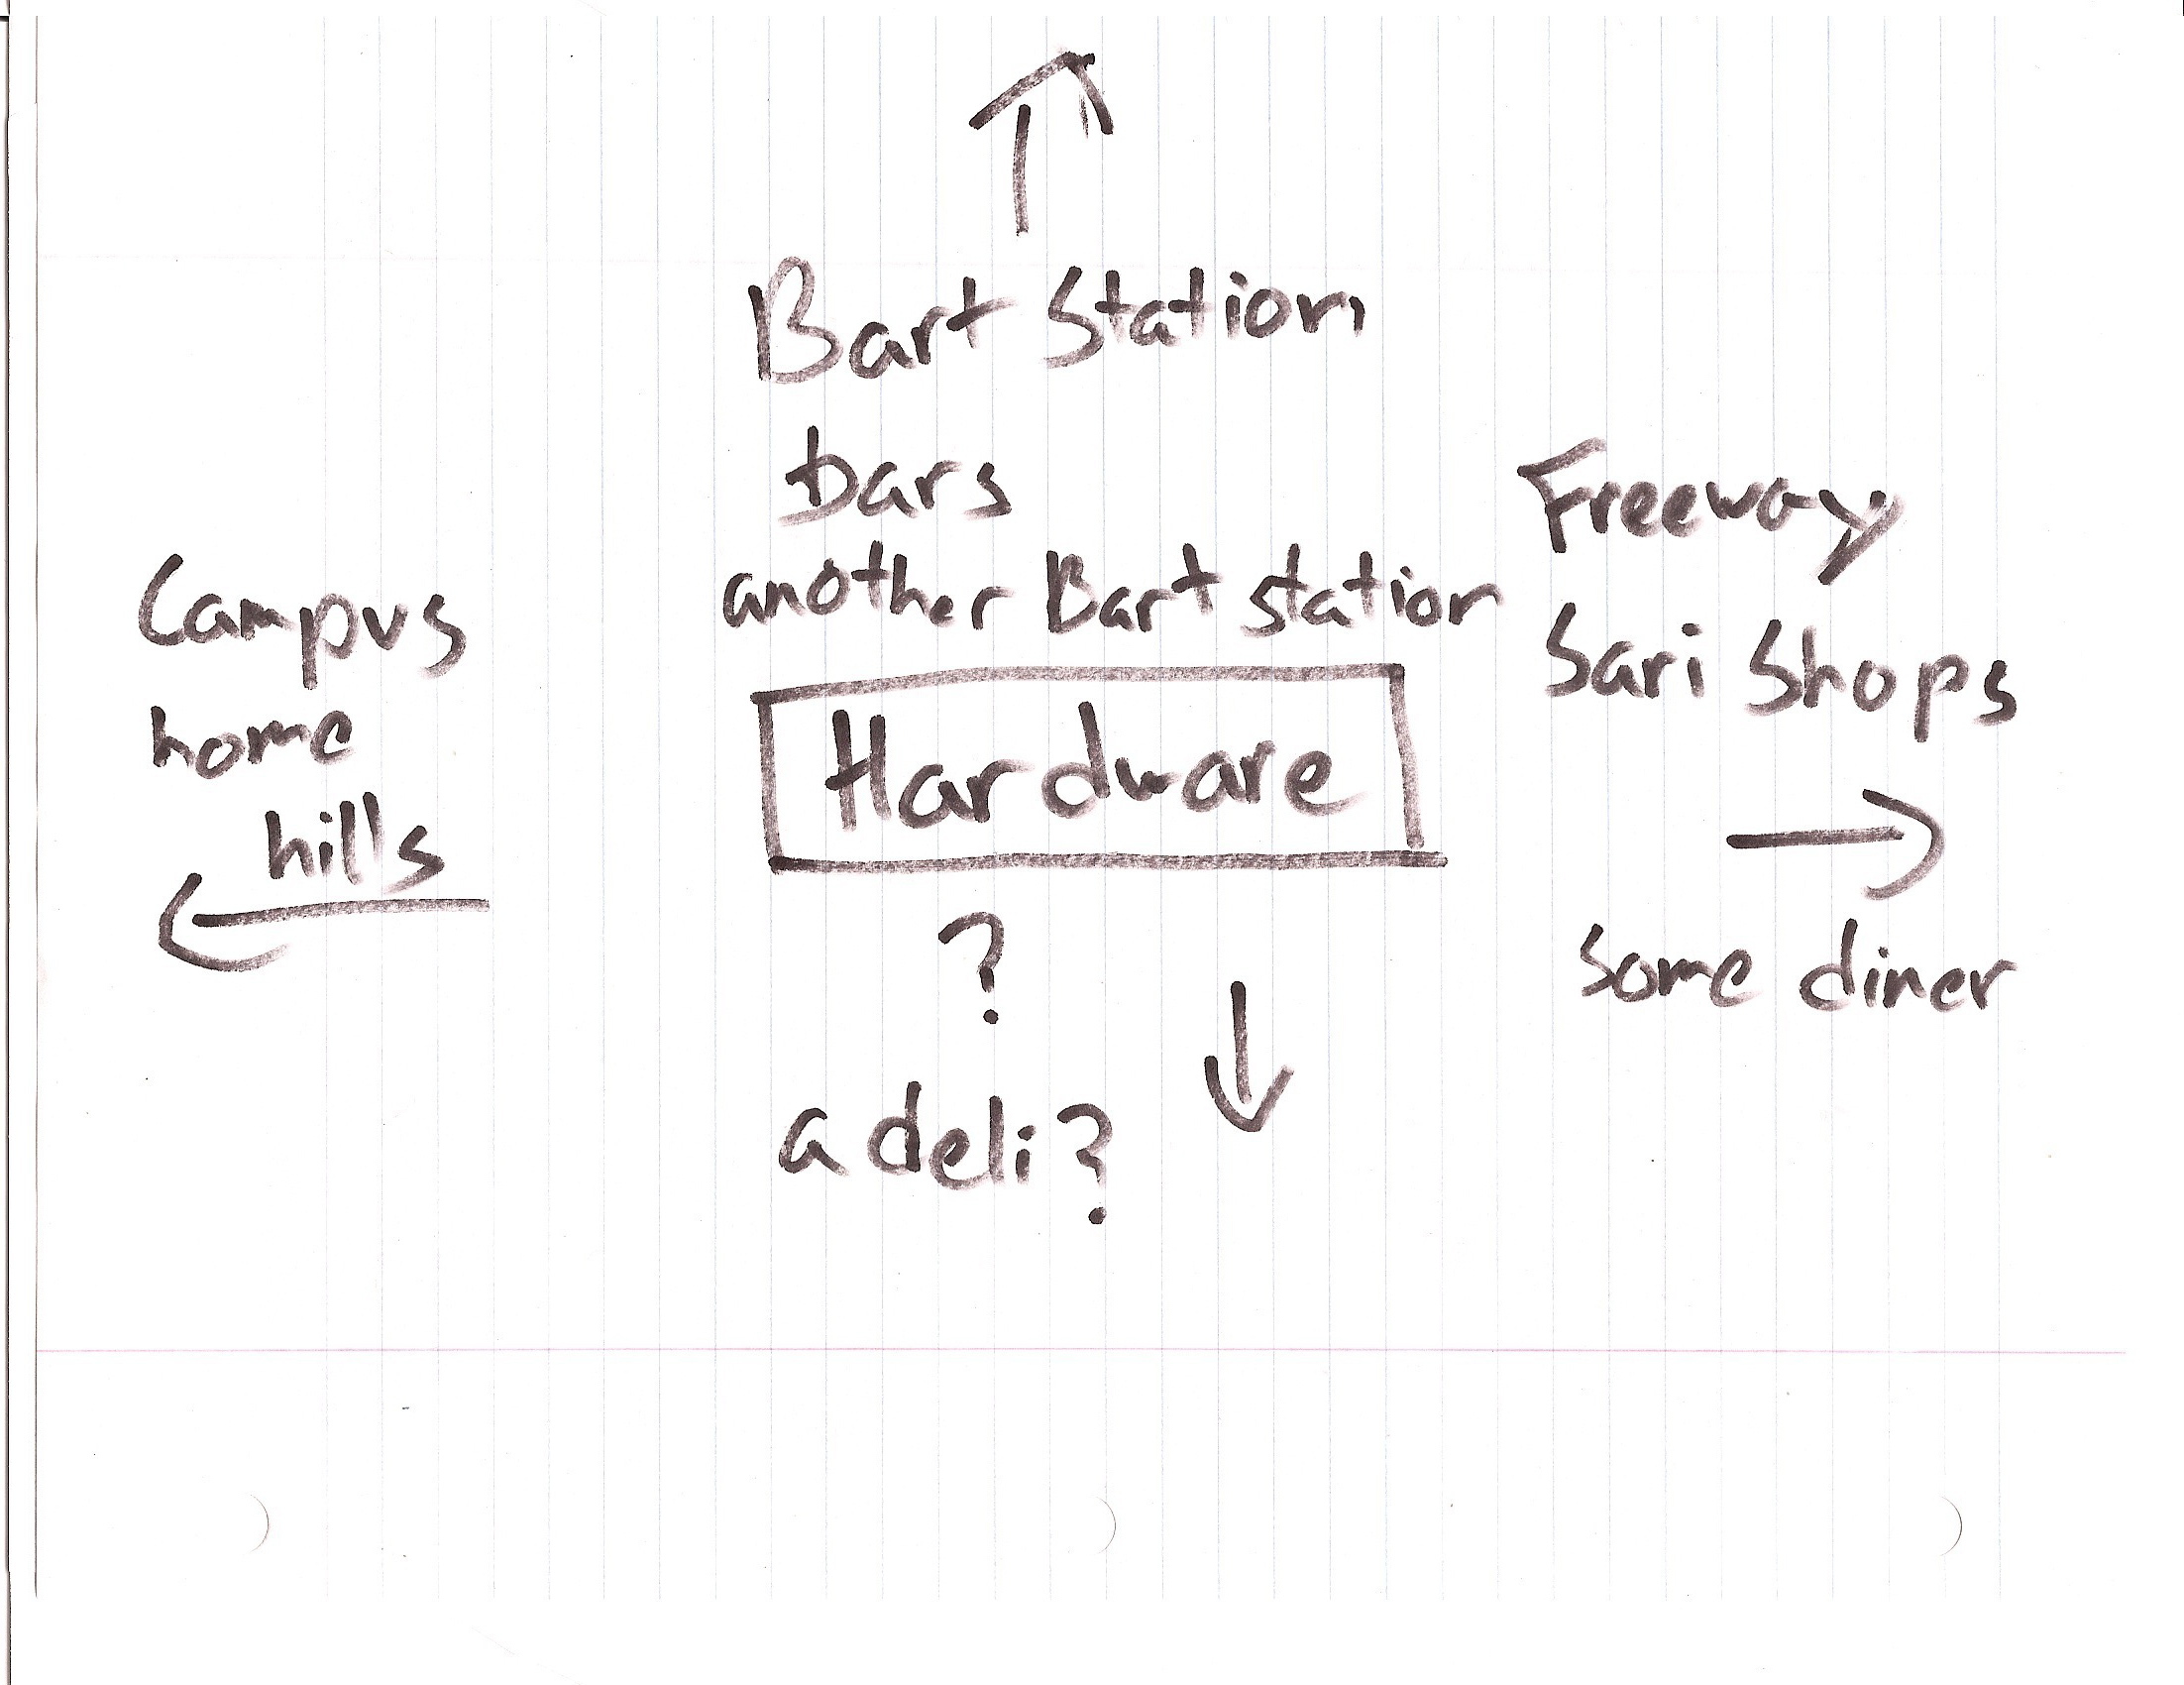 Bart Station
bars
another Bart station
Campus
home
hills
Hardware
?
a deli?
Freeway
Sari Shops
some diner